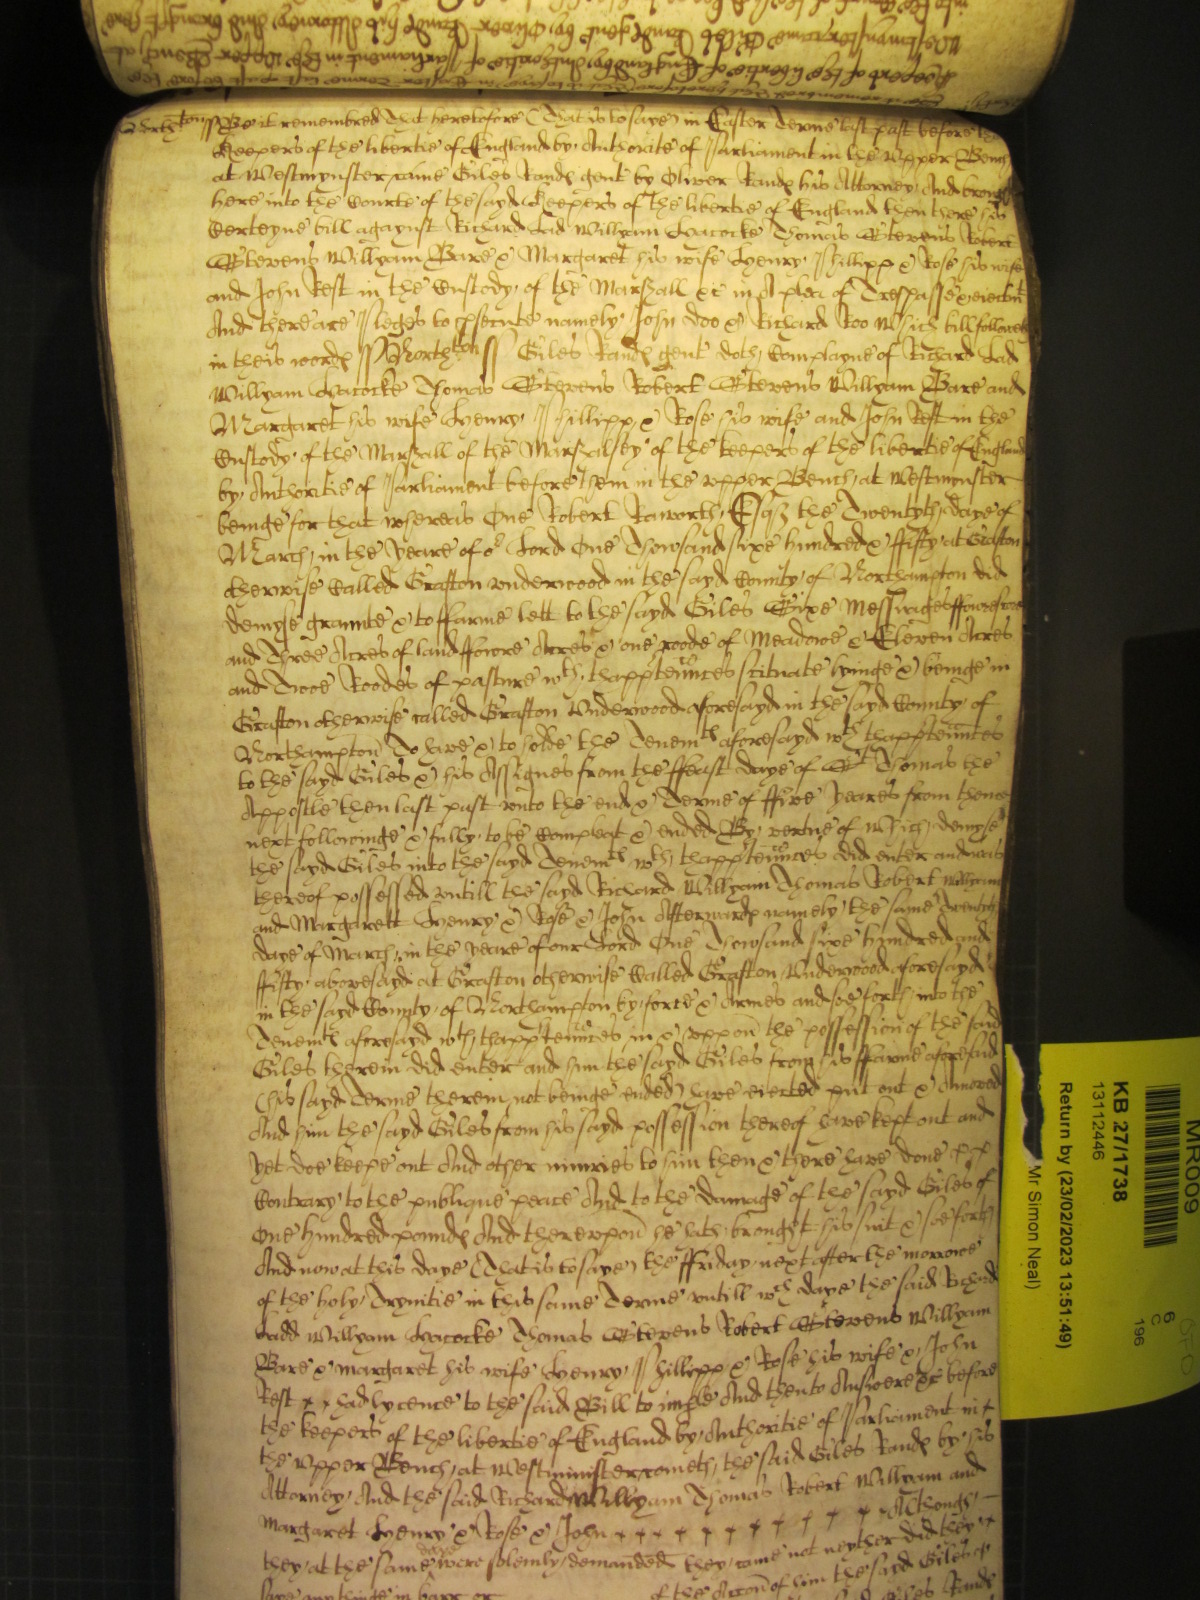 North'ton ss Be it remembred that heretofore (That is to saye) in Easter Terme last past before the
Keepers of the libertie of England by Authoritie of Parliament in the Upper Bench
at Westmynster came Giles Rande gent by Oliver Rande his Attorney And brought
here into the Courte of the sayd Keepers of the libertie of England then there his
Certeyne bill agaynst Richard Lad Willyam Leacocke Thomas Stevens Robert
Stevens Willyam Bare & Margaret his wife Henry Phillipp & Rose his wife
and John Rest in the Custody of the Marshall &c in A plea of Trespasse & eiectmt
And there are pleges to psecute namely John Doo & Richard Roo Which bill followeth
in theis wordes ss North'ton ss Giles Rande gent doth Complayne of Richard Lad
Willyam Leacocke Thomas Stevens Robert Stevens Willyam Bare and
Margaret his wife Henry Phillipp & Rose his wife and John Rest in the
Custody of the Marshall of the Marshalsey of the keepers of the libertie of England
by Authoritie of Parliament before them in the upper Bench at Westmynster
beinge for that whereas One Robert Raworth Esqz the Twentyth daye of
March in the yeare of or Lord One Thowsand sixe hundred & ffifty at Grafton
otherwise Called Grafton underwood in the sayd County of Northampton did
demyse graunte & to ffarme lett to the sayd Giles Sixe Messuages ffowrescore
and Three Acres of land ffowre Acres & one roode of Meadowe & Eleven Acres
and Twoe Roodes of pasture wth thapptennces scituate lyinge & beinge in
Grafton otherwise called Grafton Underwood aforesayd in the sayd County of
Northampton To have & to holde the Tenemts aforesayd wth thapptennces
to the sayd Giles & his Assignes from the ffeast daye of St Thomas the
Appostle then last past unto the end & Terme of ffive yeares from thence
next followinge & fully to be Compleat & ended By vertue of Which demyse
the sayd Giles into the sayd Tenemts wth thapptennces did enter and was
thereof possessed untill the sayd Richard Willyam Thomas Robert Willyam
and Margarett Henry & Rose & John Afterwards namely the same Twentyth
daye of March in the yeare of our Lord One Thowsand sixe hundred and
ffifty abovesayd at Grafton otherwise Called Grafton Underwood aforesayd
in the sayd County of Northampton by force & Armes and soe forth into the
Tenemts aforesayd wth thapptennces in & uppon the possession of the said
Giles therein did enter and him the sayd Giles from his ffarme aforesaid
(his sayd Terme therein not beinge ended) have eiected put out & Amoved
And him the sayd Giles from his sayd possession thereof have kept out and
yet doe keepe out And other iniuries to him then & there have done
Contrary to the publique peace And to the damage of the sayd Giles of
One hundred pounds And thereupon he hath brought his suit & soe forth
And now at this daye (That is to saye) the ffriday next after the morrowe
of the holy Trynitie in this same Terme untill wch daye the said Richard
Ladd Willyam Leacocke Thomas Stevens Robert Stevens Willyam
Bare & Margaret his wife Henry Phillipp & Rose his wife & John
Rest had lycence to the said Bill to imple And then to Answere &c before
the keepers of the libertie of England by Authoritie of Parliament in
the Upper Bench at Westminister cometh the said Giles Rande by his
Attorney And the said Richard Willyam Thomas Robert Willyam and
Margaret Henry & Rose & John Although
they at the same daye were solemly demanded they come not neyther did they
saye any thinge in barr of the Accon of him the sayd Giles
MR009
KB 27/1738
13112446
Return by (23/02/2023 13:51:49)
Mr Simon Neal)
6
C
196